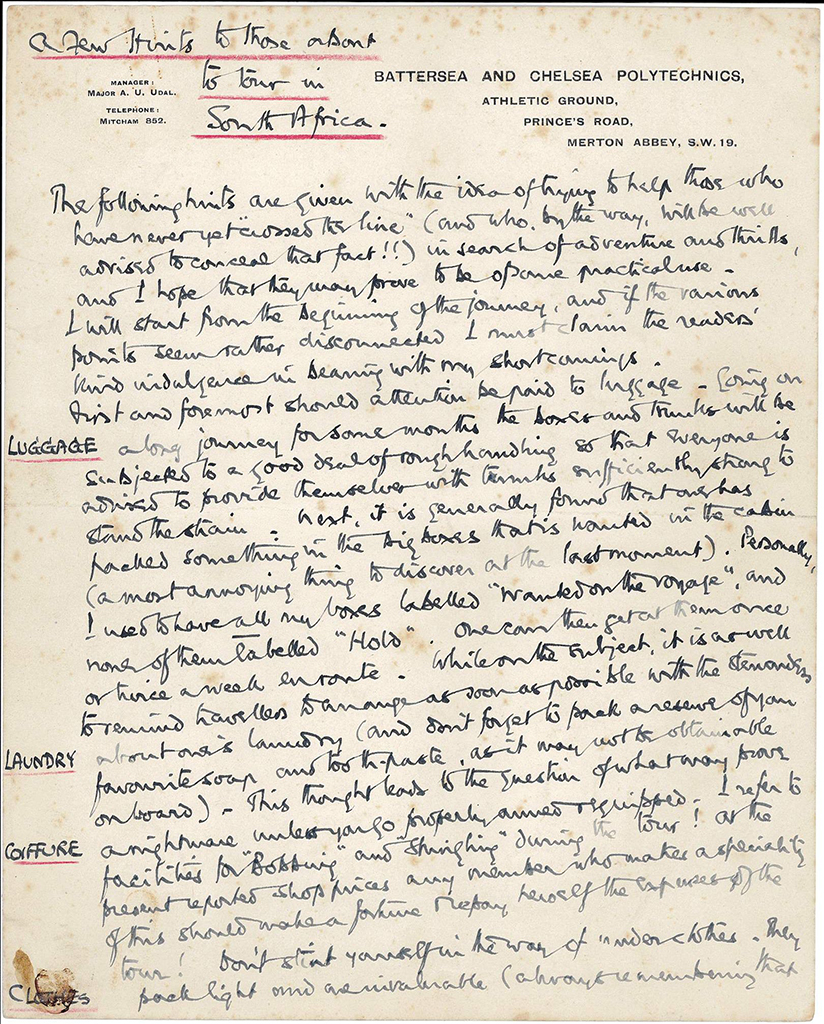 A Few Hints to those about
to tour in
South Africa.
MANAGER:
MAJOR A. U. UDAL.
TELEPHONE:
MITCHAM 852.
BATTERSEA AND CHELSEA POLYTECHNICS,
ATHLETIC GROUND,
PRINCE'S ROAD,
MERTON ABBEY, S.W. 19.
The following hints are given with the idea of trying to help those who
have never yet "crossed the line" (and who, by the way, will be well
advised to conceal that fact!!) in search of adventure and thrills,
and I hope that they may prove to be of some practical use -
I will start from the beginning of the journey, and if the various
points seem rather disconnected I must claim the readers'
kind indulgence in bearing with my shortcomings.
First and foremost should attention be paid to luggage - Going on
LUGGAGE a long journey for some months the boxes and trunks will be
subjected to a good deal of rough handling so that everyone is
advised to provide themselves with trunks sufficiently strong to
stand the strain - Next, it is generally found that one has
packed something in the big boxes that is wanted in the cabin
(a most annoying thing to discover at the last moment). Personally,
I used to have all my boxes labelled "Wanted on the voyage", and
none of them labelled "Hold". One can then get at them once
or twice a week en route - While on the subject, it is as well
to remind travellers to arrange as soon as possible with the stewardess
LAUNDRY about one's laundry (and don't forget to pack a reserve of your
favourite soap and tooth-paste, as it may not be obtainable
on board) - This thought leads to the question of what may prove
COIFFURE a nightmare unless you go properly armed & equipped - I refer to
facilities for "Bobbing" and "Shingling" during the tour! At the
present reported shop prices any member who makes a speciality
of this should make a fortune & repay herself the expenses of the
tour! Don't stint yourself in the way of underclothes - They
CLOTHES pack light and are invaluable (always remembering that